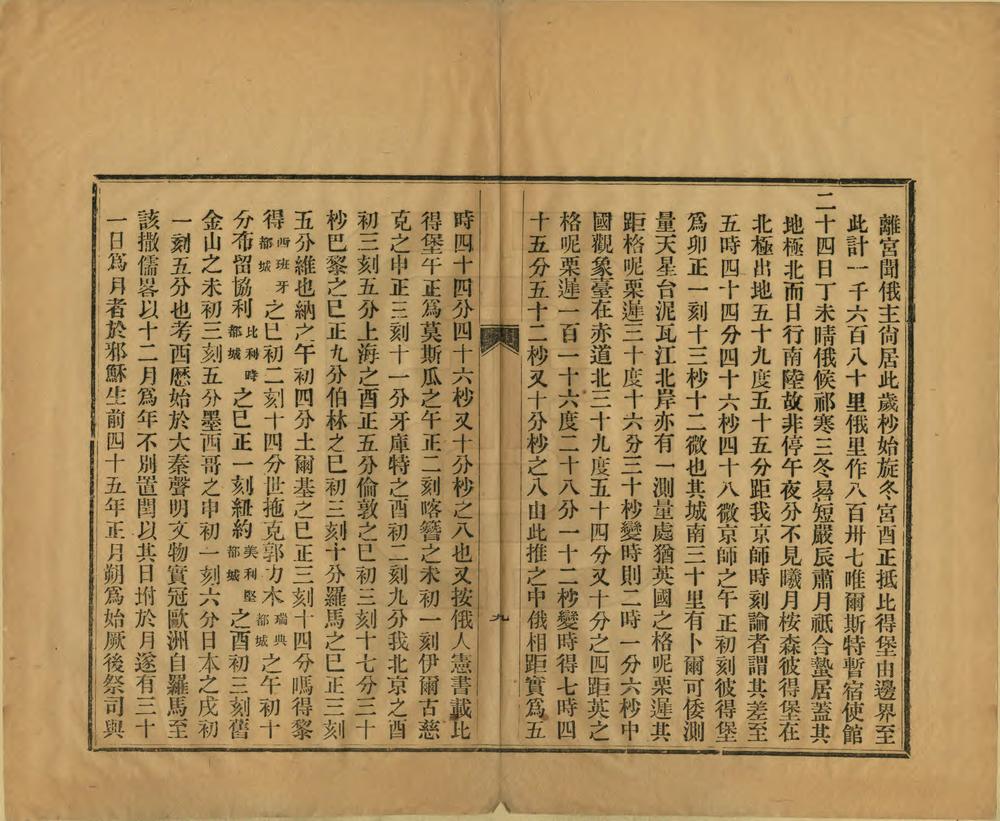 離宮聞俄主尙居此歲杪始旋冬宮酉正抵比得堡由邊界至
此計一千六百八十里俄里作八百卅七唯爾斯特暫宿使館
二十四日丁未晴俄候祁寒三冬晷短嚴辰肅月祇合蟄居蓋其
地極北而日行南陸故非停午夜分不見曦月桉森彼得堡在
北極出地五十九度五十五分距我京師時刻論者謂其差至
五時四十四分四十六秒四十八微京師之午正初刻彼得堡
爲卯正一刻十三秒十二微也其城南三十里有卜爾可倭測
量天星台泥瓦江北岸亦有一測量處猶英國之格呢栗遲其
距格呢栗遲三十度十六分三十秒變時則二時一分六秒中
國觀象臺在赤道北三十九度五十四分又十分之四距英之
格呢栗遲一百一十六度二十八分一十二秒變時得七時四
十五分五十二秒又十分秒之八由此推之中俄相距實爲五
九
時四十四分四十六秒又十分秒之八也又按俄人憲書載比
得堡午正爲莫斯瓜之午正二刻喀簪之未初一刻伊爾古慈
克之申正三刻十一分牙庫特之酉初二刻九分我北京之酉
初三刻五分上海之酉正五分倫敦之巳初三刻十七分三十
秒巴黎之巳正九分伯林之巳初三刻十分羅馬之巳正三刻
五分維也納之午初四分土爾基之巳正三刻十四分嗎得黎
得西班牙都城之巳初二刻十四分世拖克郭力木瑞典都城之午初十
分布留協利比利時都城之巳正一刻紐約美利堅都城之酉初三刻舊
金山之未初三刻五分墨西哥之申初一刻六分日本之戌初
一刻五分也考西歷始於大秦聲明文物實冠歐洲自羅馬至
該撒儒畧以十二月爲年不別置閏以其日坿於月遂有三十
一日爲月者於邪穌生前四十五年正月朔爲始厥後祭司與